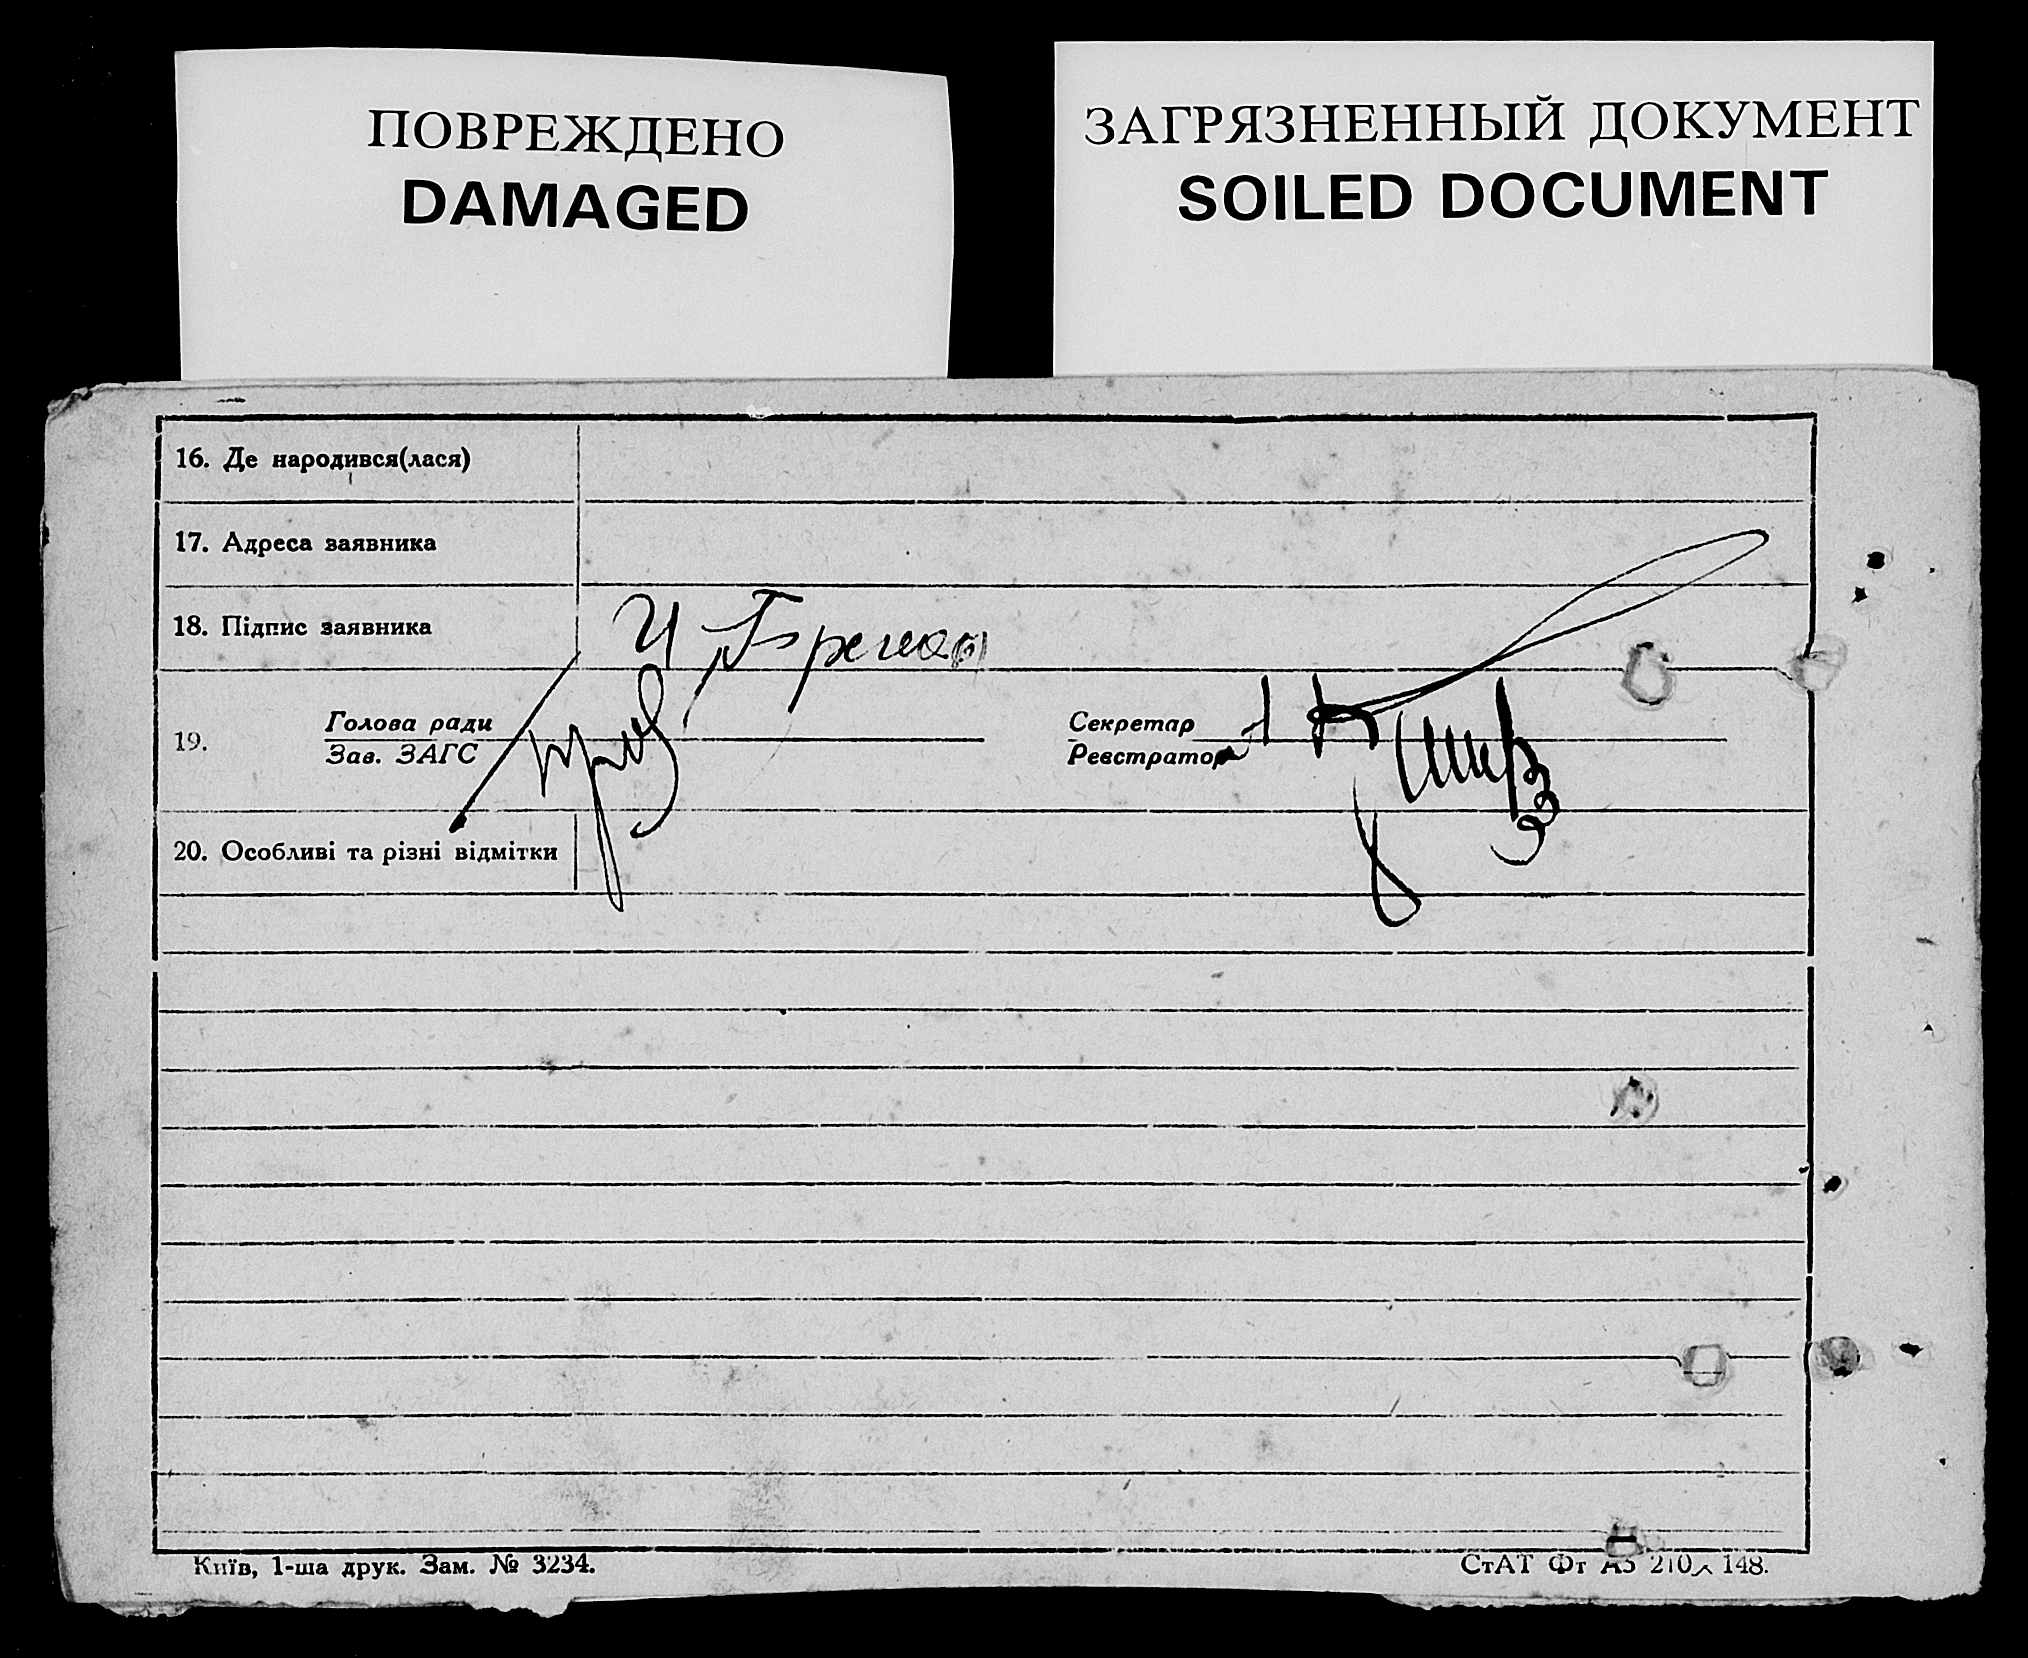 ПОВРЕЖДЕНО
DAMAGED
ЗАГРЯЗНЕННЫЙ ДОКУМЕНТ
SOILED DOCUMENT
16. Де народився(лася)
17. Адреса заявника
18. Підпис заявника
19. Голова ради Секретар
Зав. ЗАГС Реєстратор
20. Особливі та різні відмітки
Київ, 1-ша друк. Зам. № 3234. СтАТ Фт А5 210 148.